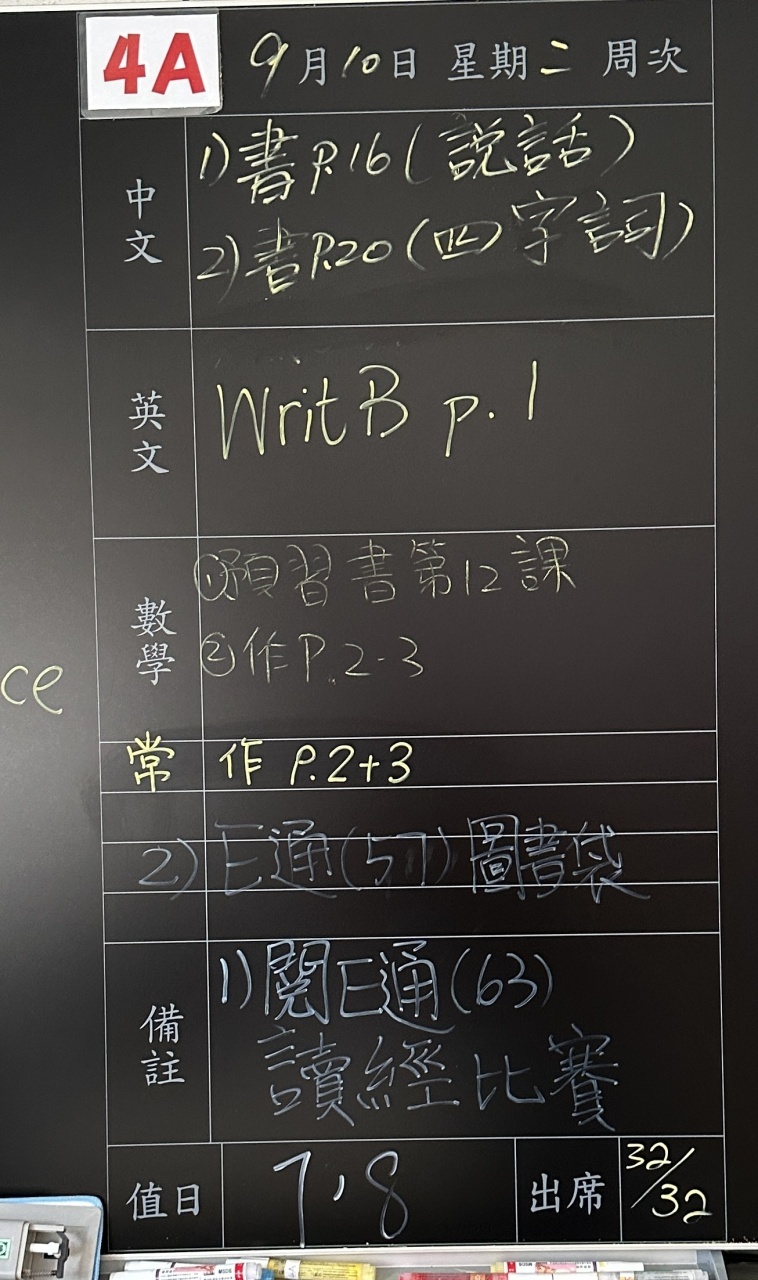 4A 9月10日 星期二 周次
中文
1)書P.16(説話)
2)書P.20(四字詞)
英文
WritB p.1
數學
①預習書第12課
②作P.2-3
ce
常 作 P.2+3
2)E通(57)圖書袋
備註
1)閱E通(63)
讀經比賽
值日 7,8 出席 32/32